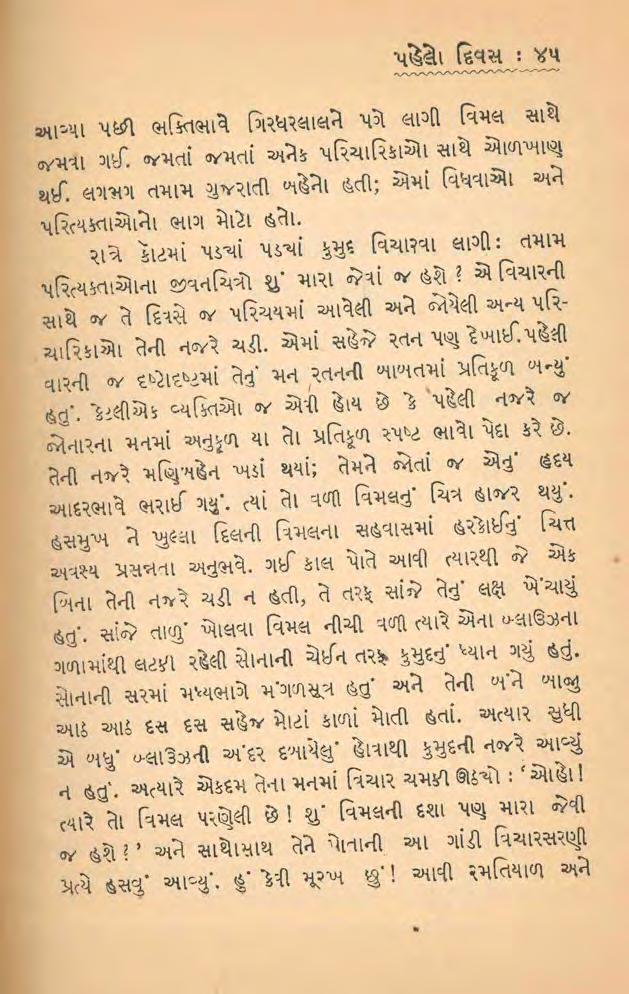 પહેલો દિવસ : ૪૫
આવ્યા પછી ભક્તિભાવે ગિરધરલાલને પગે લાગી વિમલ સાથે
જમવા ગઈ. જમતાં જમતાં અનેક પરિચારિકાઓ સાથે ઓળખાણ
થઈ. લગભગ તમામ ગુજરાતી બહેનો હતી; એમાં વિધવાઓ અને
પરિત્યક્તાઓનો ભાગ મોટો હતો.
રાત્રે કૉટમાં પડ્યાં પડ્યાં કુમુદ વિચારવા લાગી : તમામ
પરિત્યક્તાઓના જીવનચિત્રો શું મારા જેવાં જ હશે ? એ વિચારની
સાથે જ તે દિવસે જ પરિચયમાં આવેલી અને જોયેલી અન્ય પરિ-
ચારિકાઓ તેની નજરે ચડી. એમાં સહેજે રતન પણ દેખાઈ. પહેલી
વારની જ દષ્ટોદષ્ટમાં તેનું મન રતનની બાબતમાં પ્રતિકૂળ બન્યું
હતું. કેટલીએક વ્યક્તિઓ જ એવી હોય છે કે પહેલી નજરે જ
જોનારના મનમાં અનુકૂળ યા તો પ્રતિકૂળ સ્પષ્ટ ભાવો પેદા કરે છે.
તેની નજરે મણિબહેન ખડાં થયાં; તેમને જોતાં જ એનું હૃદય
આદરભાવે ભરાઈ ગયું. ત્યાં તો વળી વિમલનું ચિત્ર હાજર થયું.
હસમુખ ને ખુલ્લા દિલની વિમલના સહવાસમાં હરકોઈનું ચિત્ત
અવશ્ય પ્રસન્નતા અનુભવે. ગઈ કાલ પોતે આવી ત્યારથી જે એક
બિના તેની નજરે ચડી ન હતી, તે તરફ સાંજે તેનું લક્ષ ખેંચાયું
હતું. સાંજે તાળું ખોલવા વિમલ નીચી વળી ત્યારે એના બ્લાઉઝના
ગળામાંથી લટકી રહેલી સોનાની ચેઈન તરફ કુમુદનું ધ્યાન ગયું હતું.
સોનાની સરમાં મધ્યભાગે મંગળસૂત્ર હતું અને તેની બંને બાજુ
આઠ આઠ દસ દસ સહેજ મોટાં કાળાં મોતી હતાં. અત્યાર સુધી
એ બધું બ્લાઉઝની અંદર દબાયેલું હોવાથી કુમુદની નજરે આવ્યું
ન હતું. અત્યારે એકદમ તેના મનમાં વિચાર ચમકી ઊઠ્યો : 'ઓહો !
ત્યારે તો વિમલ પરણેલી છે ! શું વિમલની દશા પણ મારા જેવી
જ હશે ? ' અને સાથોસાથ તેને પોતાની આ ગાંડી વિચારસરણી
પ્રત્યે હસવું આવ્યું. હું કેવી મૂરખ છું ! આવી રમતિયાળ અને